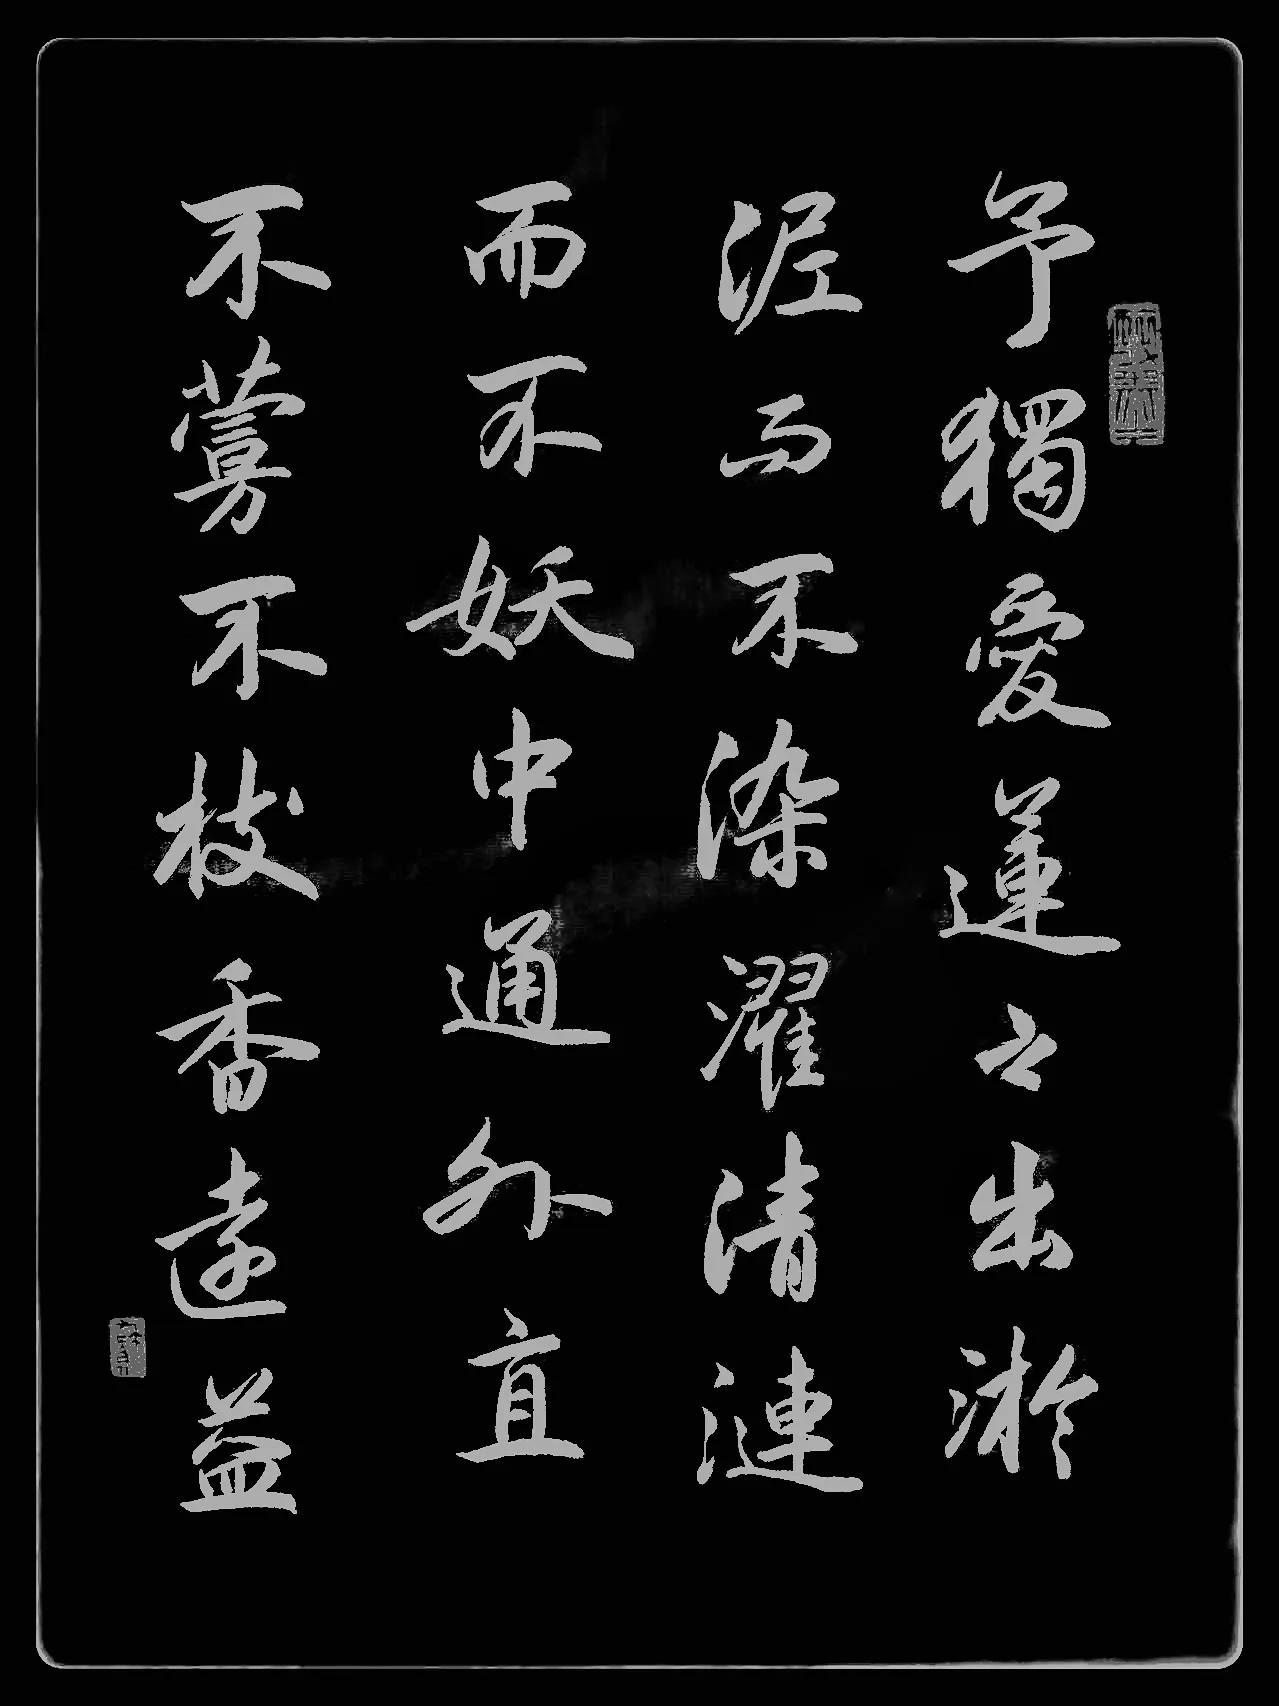 予獨愛蓮之出淤
泥而不染濯清漣
而不妖中通外直
不蔓不枝香遠益